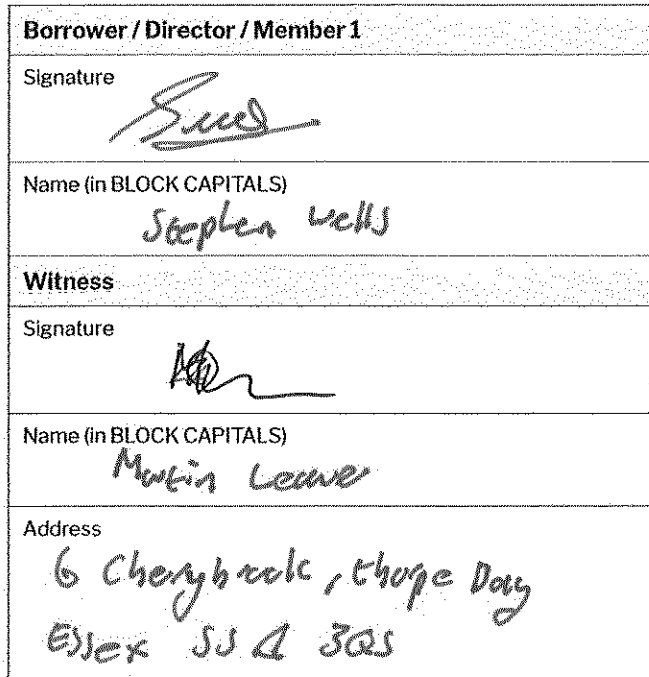 Borrower / Director / Member 1
Signature
Name (in BLOCK CAPITALS)
Stephen Wells
Witness
Signature
Name (in BLOCK CAPITALS)
Martin
Address
6 Cherybrook, thorpe Bay
Essex SS 3QS